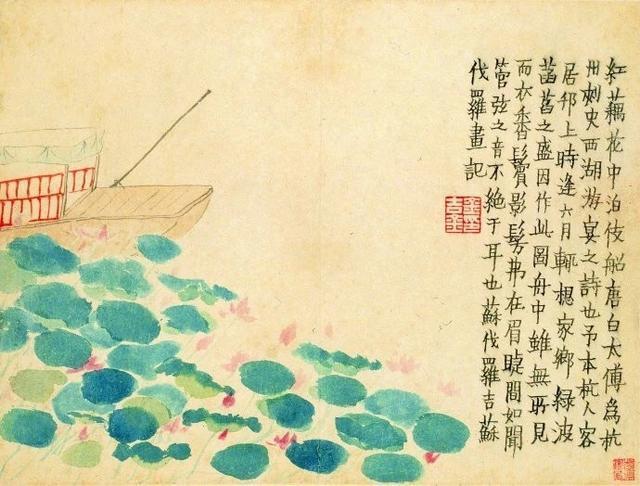 紅藕花中泊伎船唐白太傅為杭
州刺史西湖游宴之詩也予本杭人客
居邗上時逢六月輒想家鄉綠波
菡萏之盛因作此圖舟中雖無所見
而衣香鬢影髣弗在眉睫間如聞
管弦之音不絕于耳也蘇伐羅吉蘇
伐羅畫記